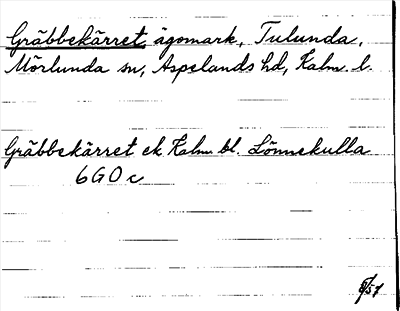 Gräbbekärret, ägomark, Tulunda,
Mörlunda sn, Aspelands hd, Kalm. l.
Gräbbekärret ek Kalm bl. Lönnekulla
6G0c